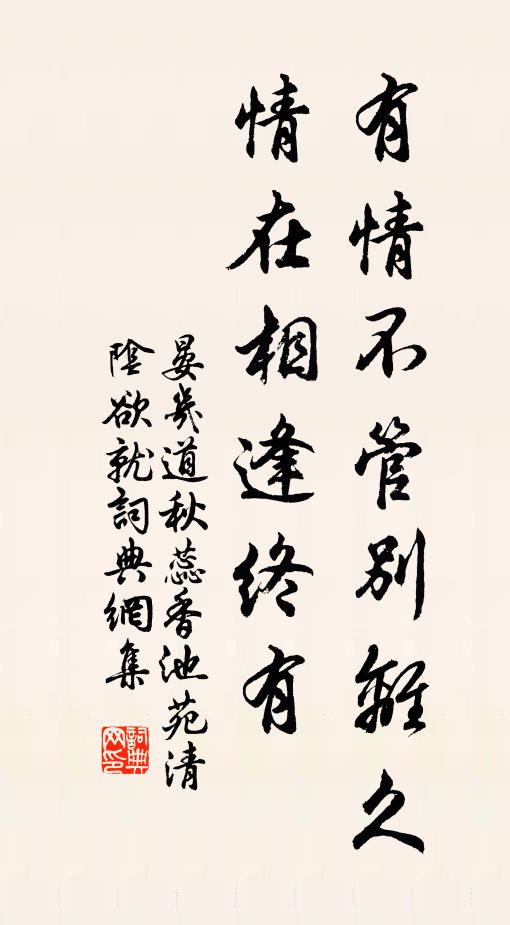 有情不管別離久
情在相逢終有
晏幾道秋蕊香池苑清
陰欲就詞典網集
詞典
网印